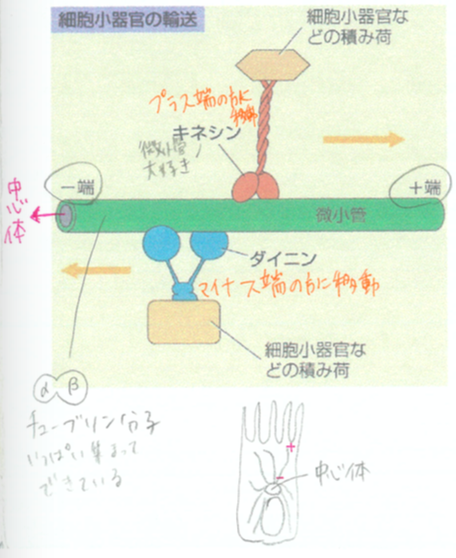 細胞小器官の輸送
細胞小器官な
どの積み荷
プラス端の方に
移動
キネシン
微小管
大好き
一端
+端
中心体
微小管
ダイニン
マイナス端の方に移動
細胞小器官な
どの積み荷
α β
チューブリン分子
いっぱい集まって
できている
+
-
中心体